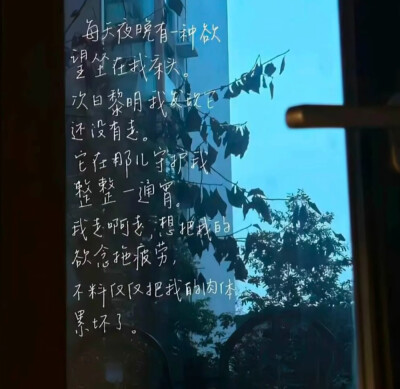 每天夜晚有一种欲
望坐在我床头。
次日黎明我发现它
还没有走。
它在那儿守护我
整整一通宵。
我走啊走,想把我的
欲念拖疲劳,
不料仅仅把我的肉体
累坏了。